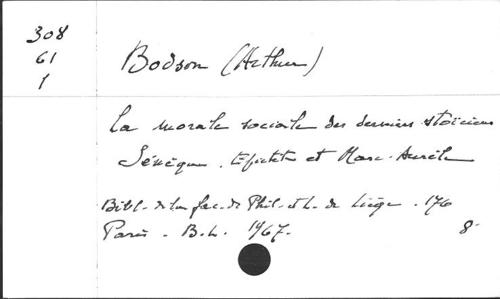 308
61
1
Bodson (Arthur)
La morale sociale des derniers stoïciens
Sénèque, Epictète et Marc-Aurèle
Bibl. de la fac. de Phil. et L. de Liège. 176
Paris. B.L. 1967. 8°